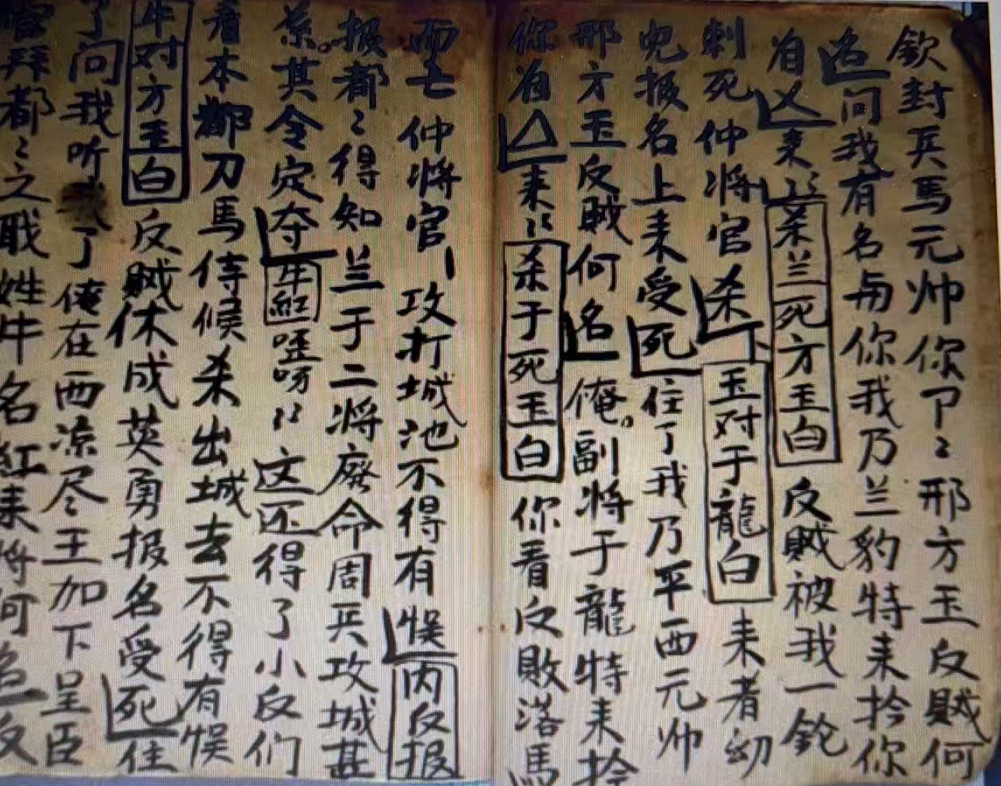 钦封兵馬元帅你卩〻邢方玉反贼何
名问我有名与你我乃兰豹特来拎你
自乂来〻杀兰死方玉白反贼被我一鎗
刺死仲将官杀下玉对于龍白来者幼
児报名上来受死住了我乃平西元帅
邢方玉反贼何名俺。副将于龍特来拎
你自△来〻杀于死玉白你看反敗落馬
而亡仲将官攻打城池不得有悮内反报
报都〻得知兰于二将廃命周兵攻城甚
紧。其令定夺牛紅哇呀〻这还得了小反们
看本都刀馬侍候杀出城去不得有悮
牛对方玉白反贼休成英勇报名受死住
了问我听我了俺在西凉尽王加下呈臣
拜都〻之戢姓牛名紅来将何名反